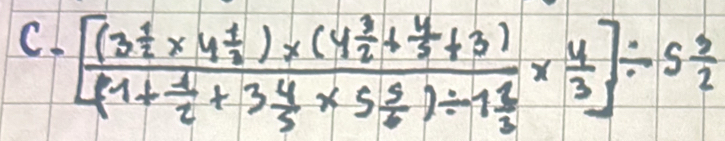 C. [(3 1/2 × 4 1/3) × (4 3/2 + 4/5 + 3) / (1 + 1/2 + 3 4/5 × 5 5/6) ÷ 1 2/3 × 4/3] ÷ 5 3/2